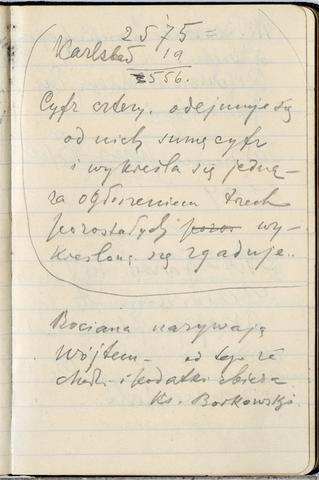 2575 =
Karlsbad 19
2556.
Cyfr cztery. odejmuje się
od nich sumę cyfr
i wykreśla się jedną –
za ogłoszeniem trzech
pozostałych poz. wy-
kreśloną się zgaduje..
Bociana nazywają
Wójtem – od tego że
chodzi i podatki zbiera
Ks. Borkowski.